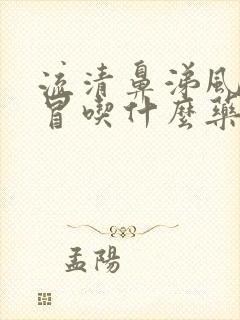 流清鼻涕風
冒喫什麼藥
孟陽